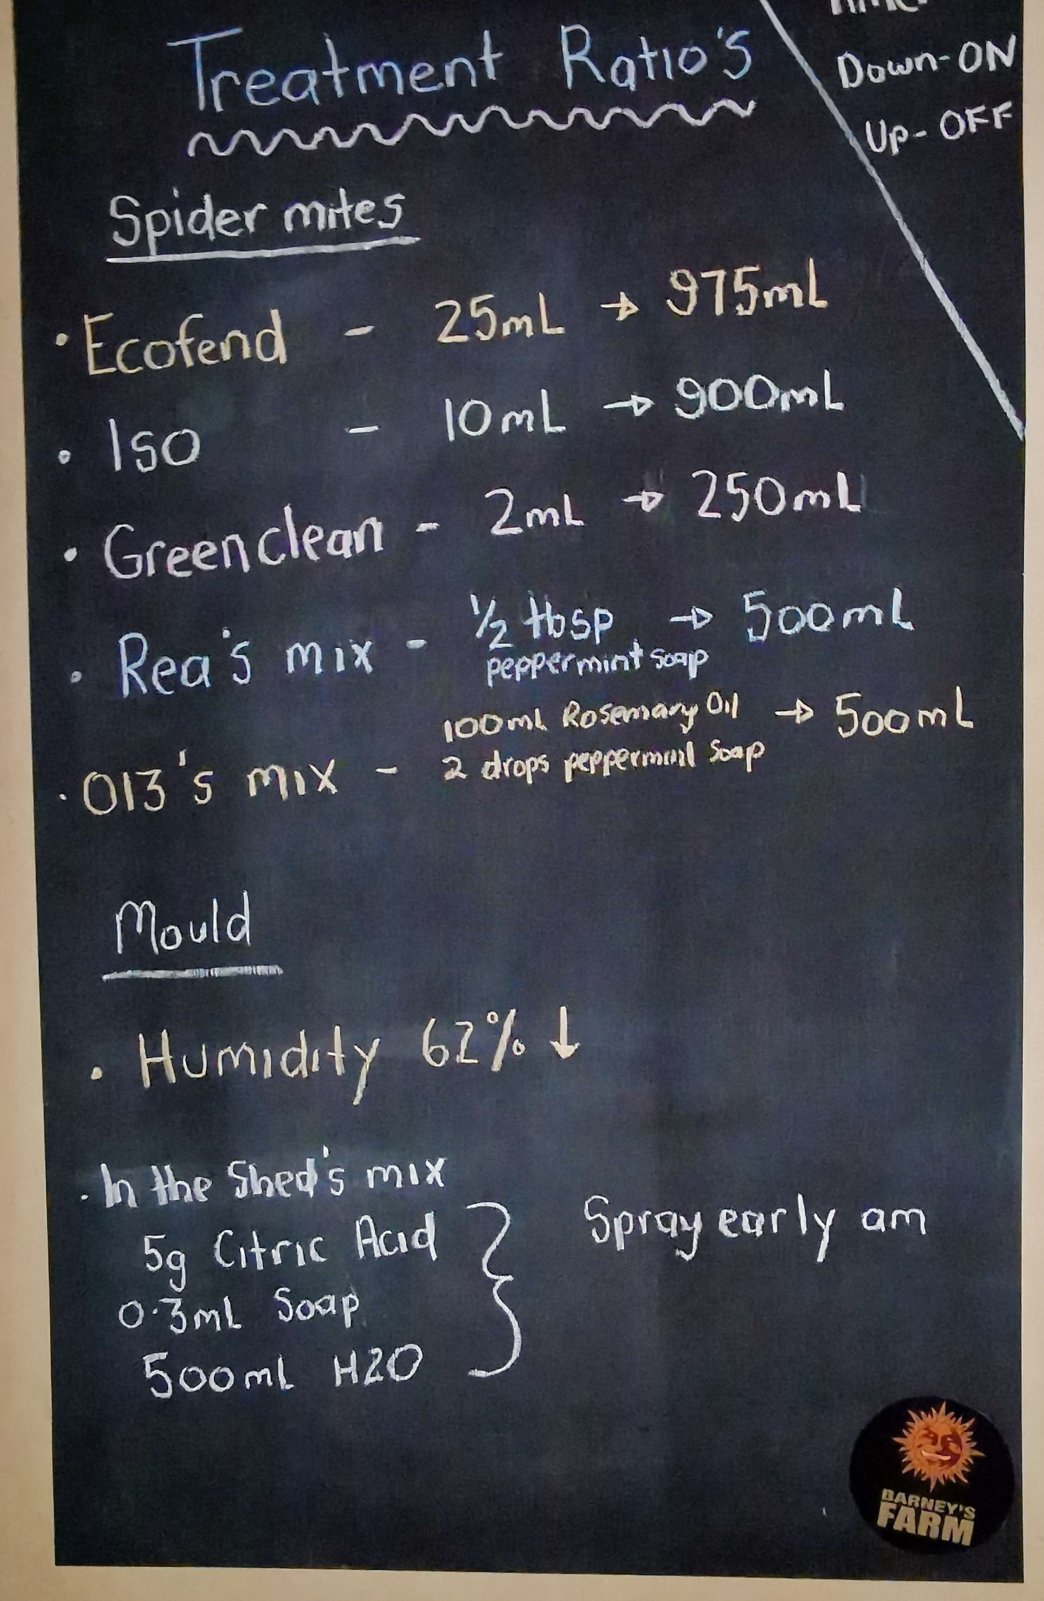 Treatment Ratio's
Down-ON
Up-OFF
Spider mites
• Ecofend - 25mL → 975mL
• Iso - 10mL → 900mL
• Greenclean - 2mL → 250mL
• Rea's mix - 1/2 tbsp → 500mL
peppermint soap
100mL Rosemary Oil → 500mL
• 013's mix - 2 drops peppermint Soap
Mould
• Humidity 62% ↓
• In the Shed's mix
5g Citric Acid
Spray early am
0.3mL Soap
500mL H2O
BARNEY'S
FARM